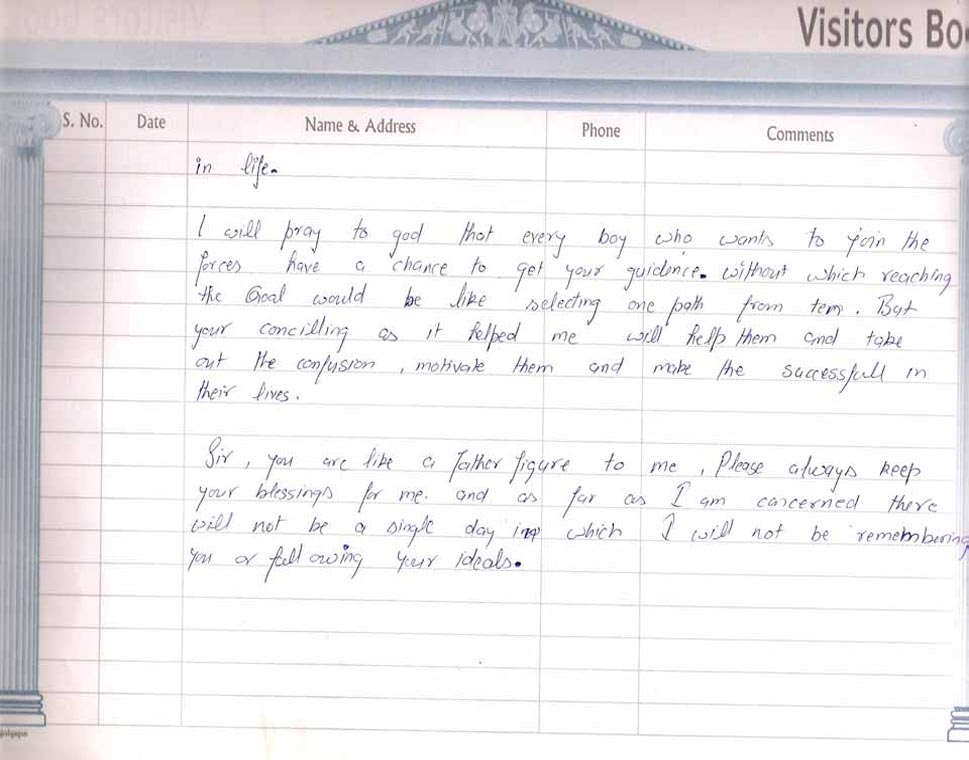 Visitors Bo
S. No. Date Name & Address Phone Comments
in life.
I will pray to god that every boy who wants to join the
forces have a chance to get your guidence. without which reaching
the Goal would be like selecting one path from ten. But
your concilling as it helped me will help them and take
out the confusion, motivate them and make the successfull in
their lives.
Sir, you are like a father figure to me, Please always keep
your blessings for me. and as far as I am concerned there
will not be a single day in which I will not be remembering
you or following your ideals.